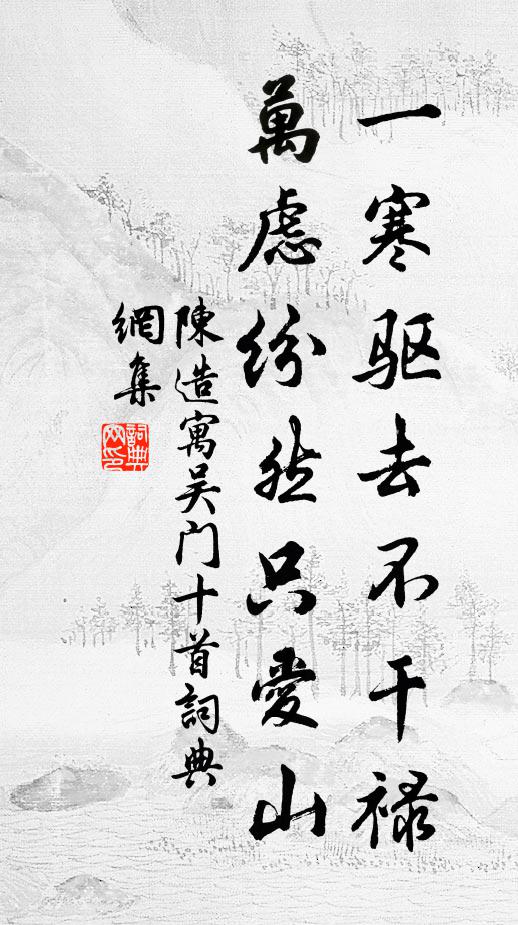 一寒驱去不干禄
萬慮紛然只愛山
陳造寓吴门十首詞典
網集
詞典網印